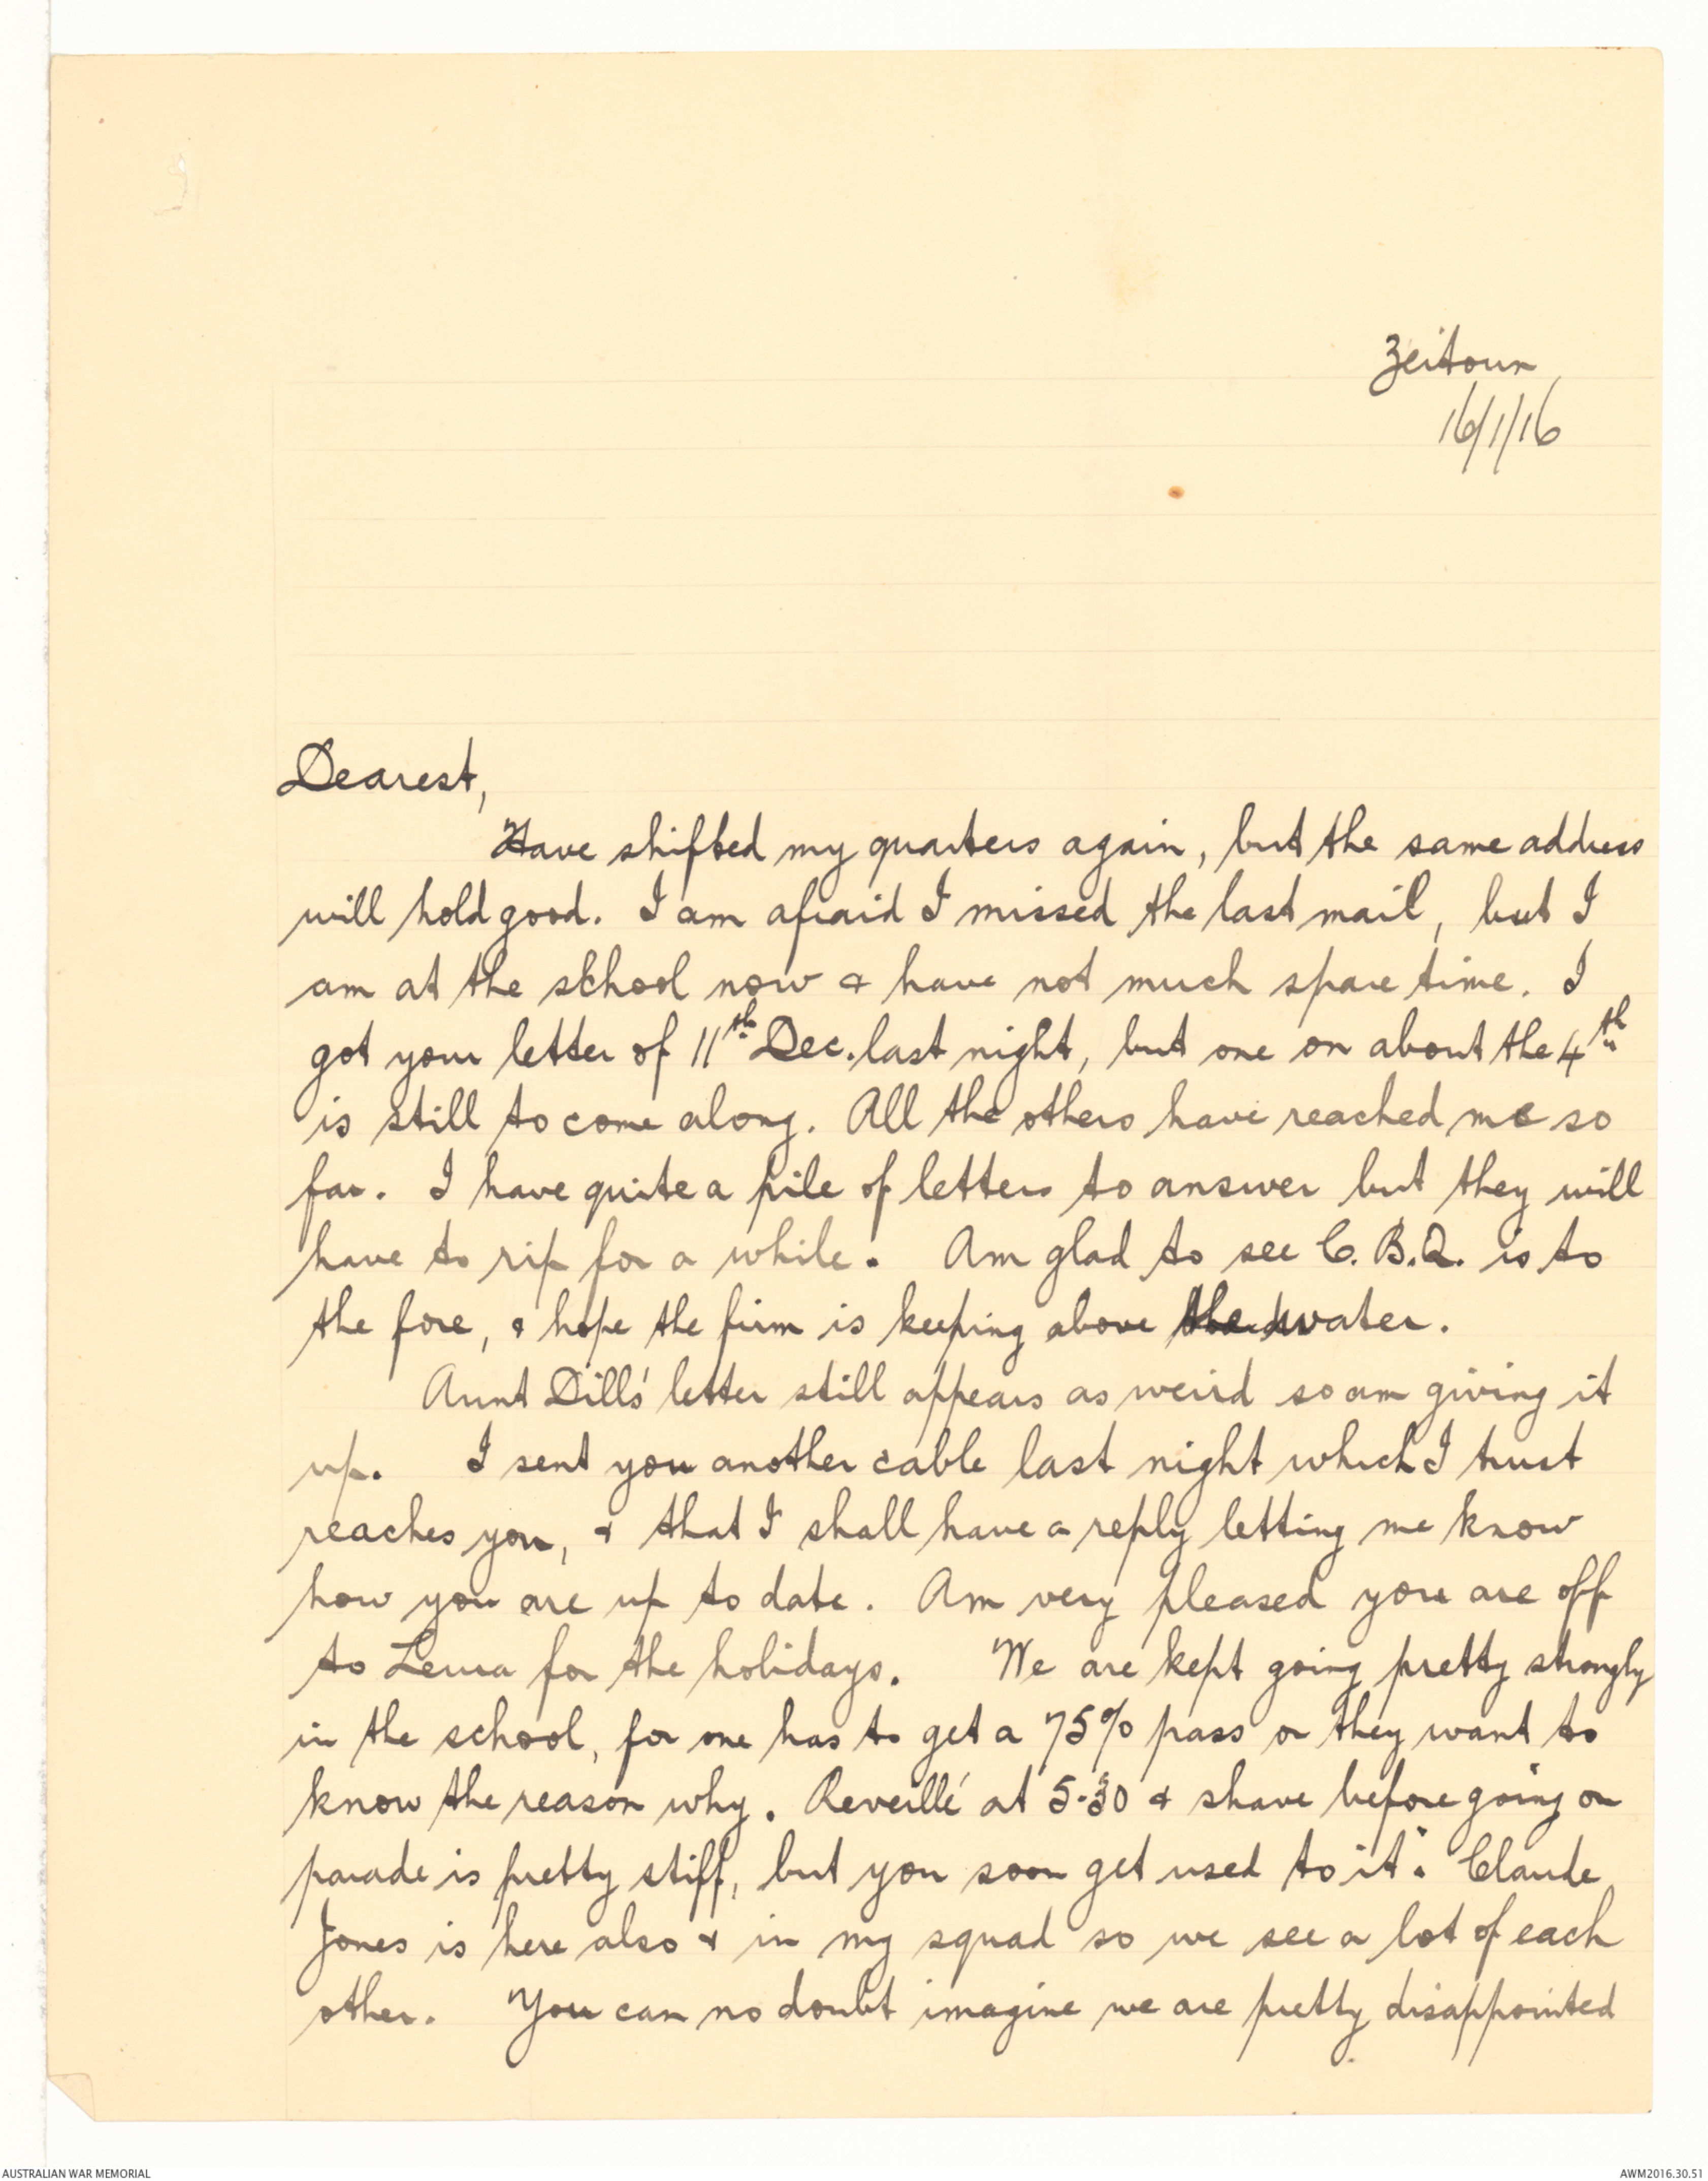 Zeitoun
16/1/16
Dearest,
Have shifted my quarters again, but the same address
will hold good. I am afraid I missed the last mail, but I
am at the school now & have not much spare time. I
got your letter of 11th Dec. last night, but one on about the 4th
is still to come along. All the others have reached me so
far. I have quite a pile of letters to answer but they will
have to rip for a while. Am glad to see C.B.Q. is to
the fore, & hope the firm is keeping above water.
Aunt Dill's letter still appears as weird so am giving it
up. I sent you another cable last night which I trust
reaches you, & that I shall have a reply letting me know
how you are up to date. Am very pleased you are off
to Leura for the holidays. We are kept going pretty strongly
in the school, for one has to get a 75% pass or they want to
know the reason why. Reveillé at 5-30 & shave before going on
parade is pretty stiff, but you soon get used to it. Claude
Jones is here also & in my squad so we see a lot of each
other. You can no doubt imagine we are pretty disappointed
AUSTRALIAN WAR MEMORIAL
AWM2016.30.51